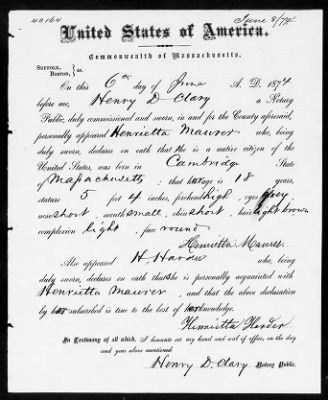 40164
June 8/74
United States of America.
Commonwealth of Massachusetts.
SUFFOLK, } ss.
BOSTON,
On this 6th day of June A. D. 1874
before me, Henry D Clary a Notary
Public, duly commissioned and sworn, in and for the County aforesaid,
personally appeared Henrietta Maurer who, being
duly sworn, declares on oath that she is a native citizen of the
United States, was born in Cambridge State
of Massachusetts; that her age is 18 years,
stature 5 feet 4 inches, forehead high, eyes grey,
nose short, mouth small, chin short, hair light brown
complexion light, face round
Henrietta Maurer
Also appeared H. who, being
duly sworn, declares on oath that she is personally acquainted with
Henrietta Maurer, and that the above declaration
by her subscribed is true to the best of her knowledge.
Henrietta
In Testimony of all which, I annexed my hand and seal of office, on the day
and year above mentioned.
Henry D. Clary Notary Public.